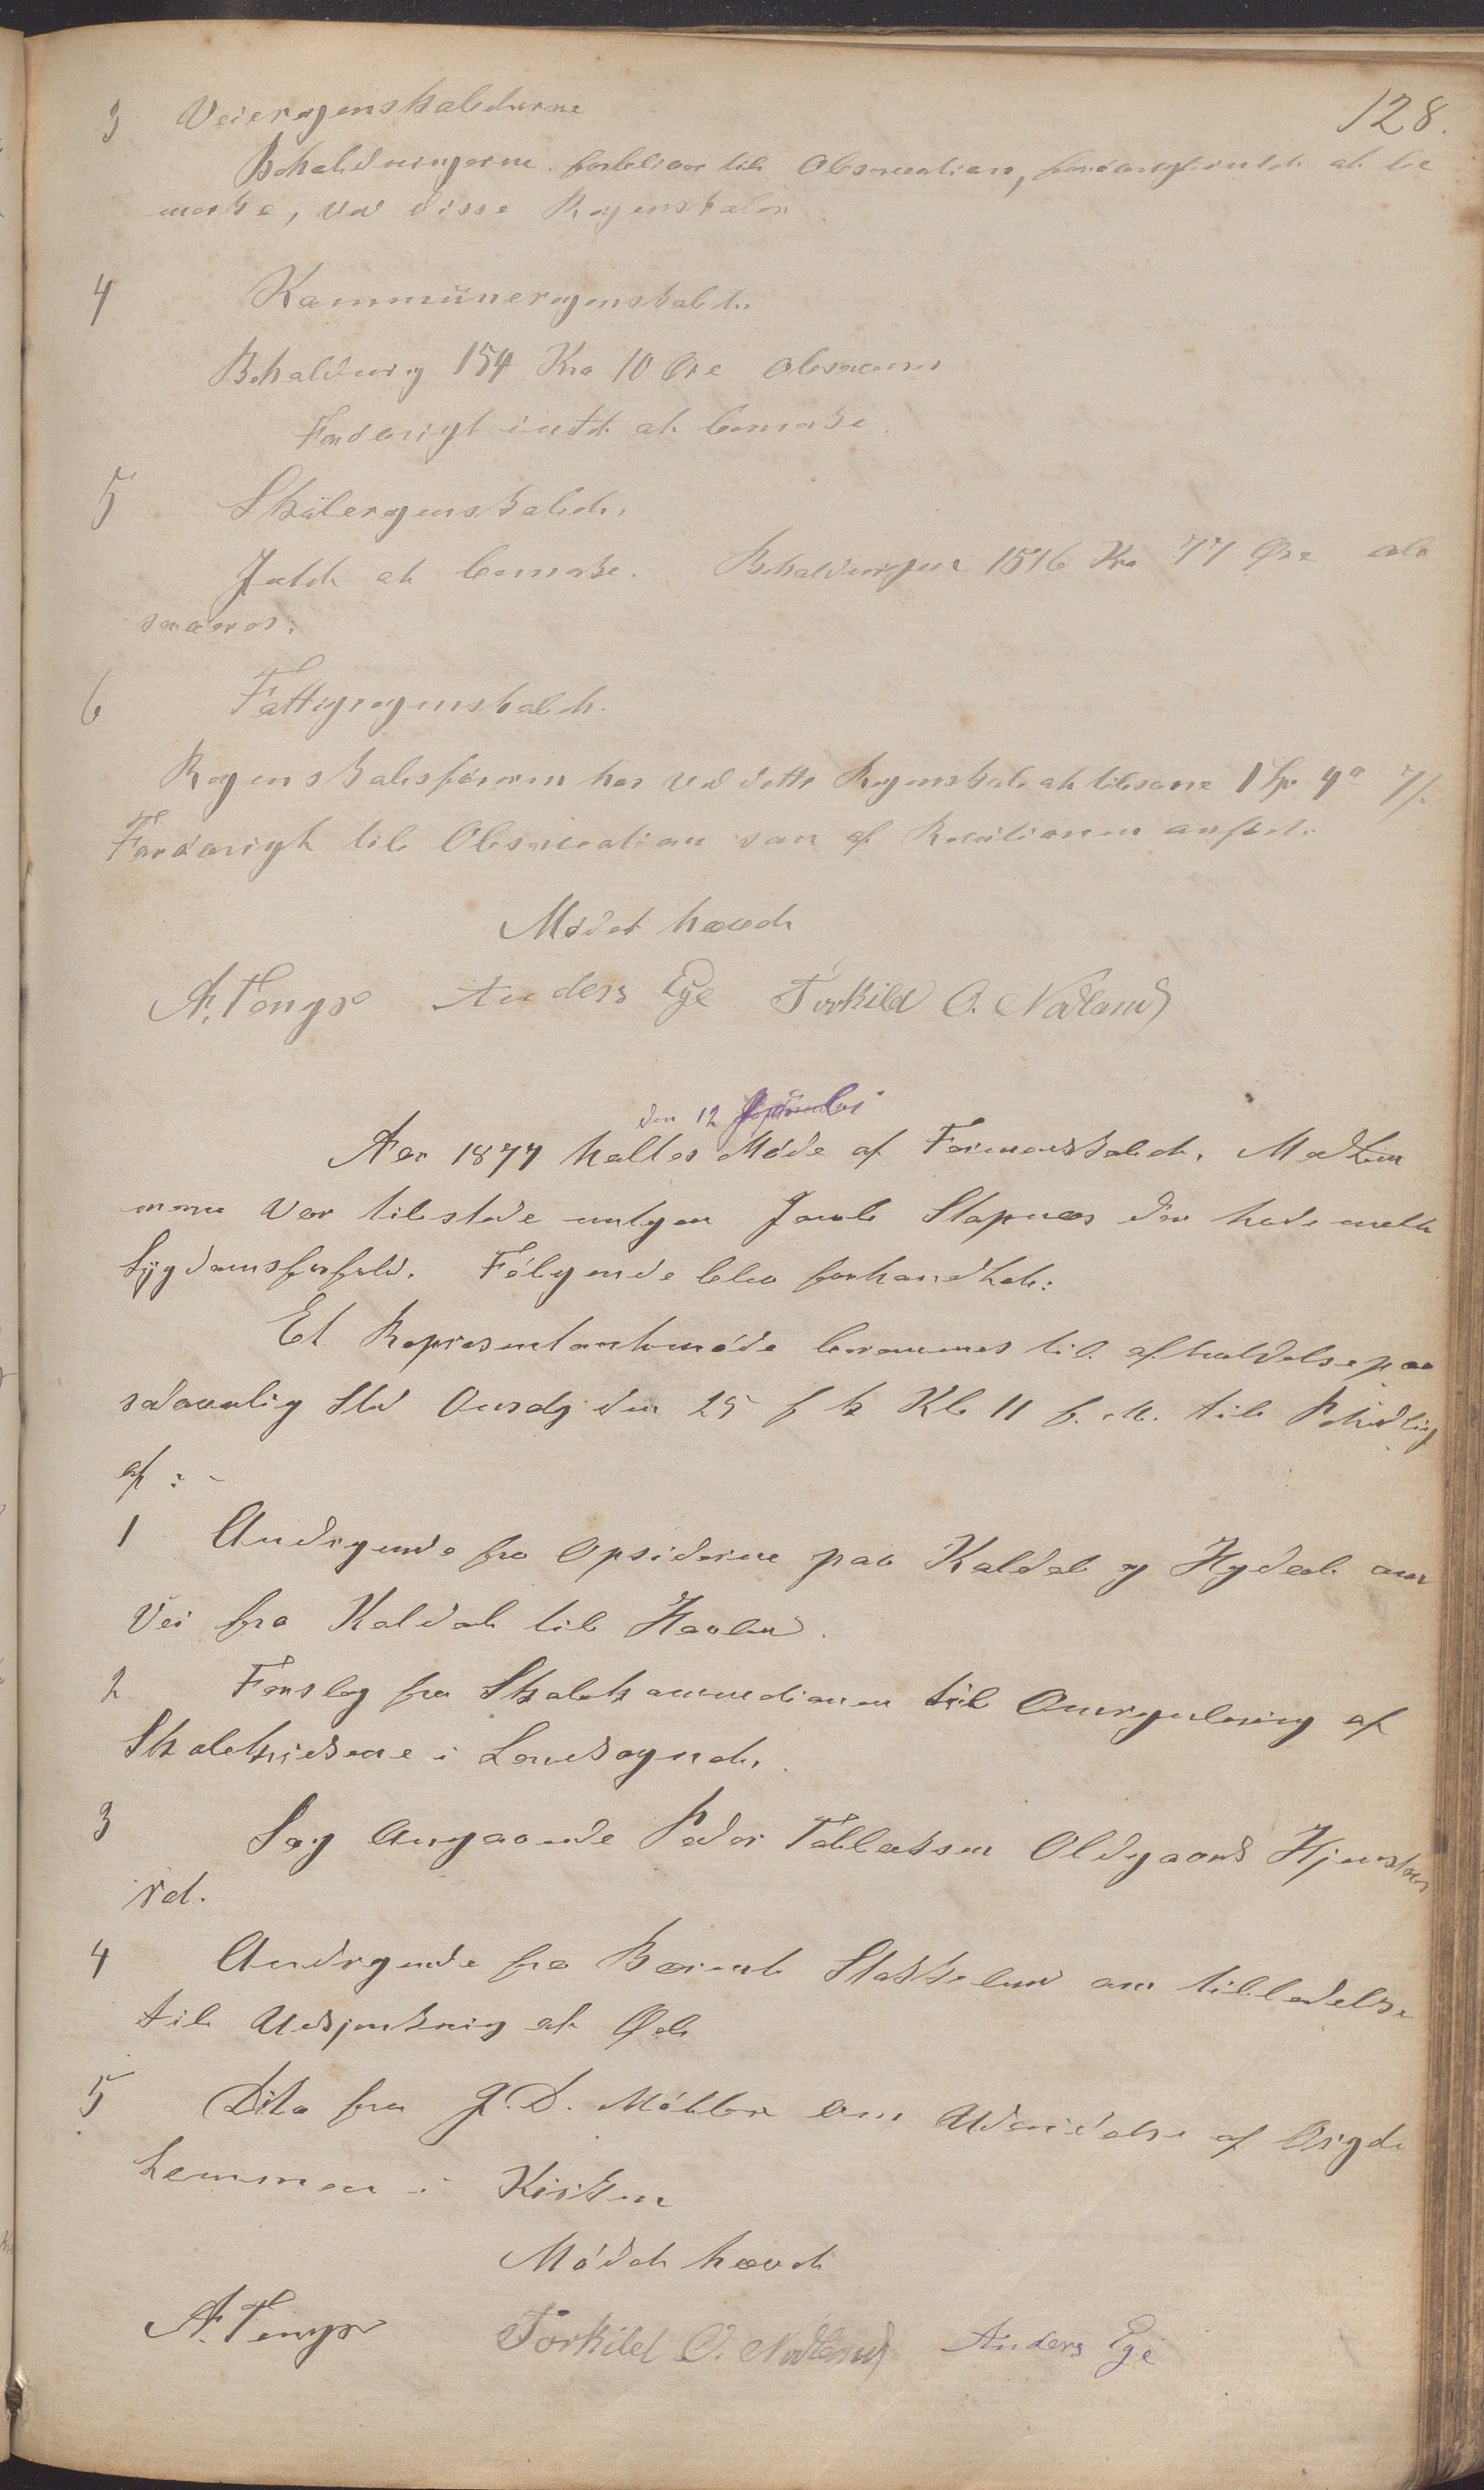 128.
3 Veieregenskaberne
Beholdningerne forbliver til Observation, forøvrigt intet at be
mærke, ved disse Regenskaber
4 Kommuneregenskabet.
Beholdning 154 Kr 10 Øre observeres
Forøvrigt intet at bemærke.
5 Skoleregenskabet.
Intet at bemærke. Beholdningen 1516 Kr 77 Øre ob
serveres.
6 Fattigregenskabet.
Regenskabsføreren har ved dette Regenskab at tilsvare 1 Sp 4 7/.
Forøvrigt til Observation som af Revisionen anført.
Mødet hævet
A. Tengs Anders Eye Torkild O. Nodland
den 12 September
Aar 1877 holdtes Møde af Formandskabet. Medlem
merne var tilstede undtagen Jacob Stapnes der havde meldt
Sygdomsforfald. Følgende blev forhandlet:
Et Representantmøde berammes til afholdelse paa
sædvanlig Sted Onsdg den 25 f k Kl 11 f. M. til Behdlig
af:-
1 Andragende fra Opsiderne paa Kaldal og om
Vei fra Kaldal til
2 Forslag fra Skolekommisionen til Omregulering af
Skolekredsene i Landsognet.
3 Sag Angaaende Peder Tollaksen Oldgaards Hjemstavns
ret.
4 Andragende fra Berent om tilladelse
til Udskjenkning af Øl
5 Dito fra J. D. Møller om Udvidelse af Orgel
lemmen i Kirken
Mødet hævet
A. Tengs Torkild O. Nodland Anders Eye